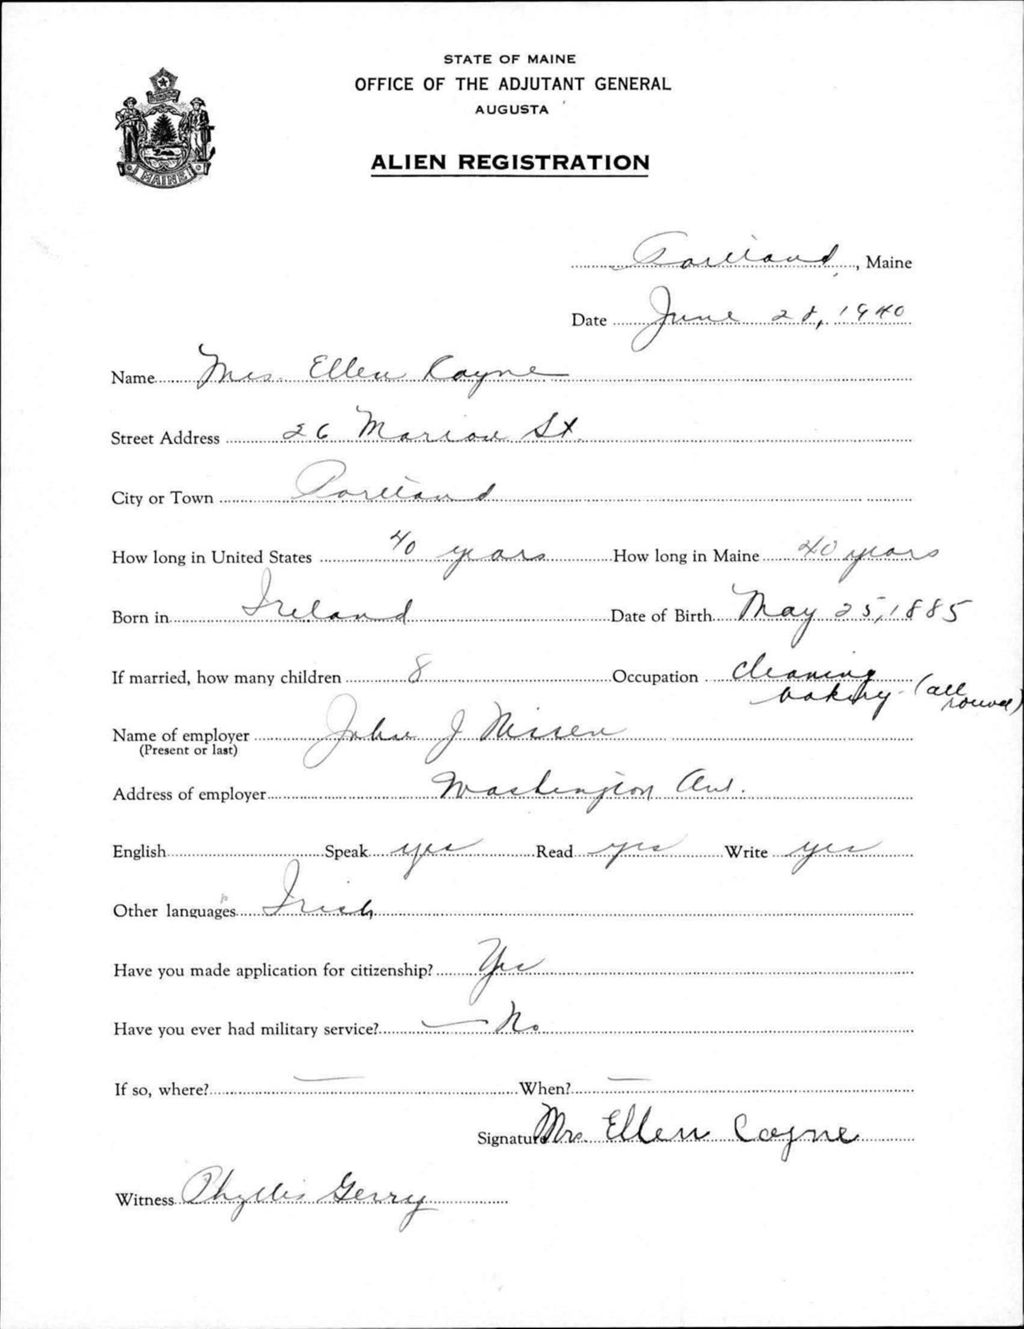 STATE OF MAINE
OFFICE OF THE ADJUTANT GENERAL
AUGUSTA
ALIEN REGISTRATION
MAINE
Portland, Maine
Date June 28, 1940
Name Mrs. Ellen Coyne
Street Address 26 Marion St.
City or Town Portland
How long in United States 40 years How long in Maine 40 years
Born in Ireland Date of Birth May 25, 1885
If married, how many children 8 Occupation cleaning
bakery (all
round)
Name of employer John J Nissen
(Present or last)
Address of employer Washington Ave.
English Speak yes Read yes Write yes
Other languages Irish
Have you made application for citizenship? Yes
Have you ever had military service? — No
If so, where? — When? —
Signature Mrs. Ellen Coyne
Witness Phyllis Gerry